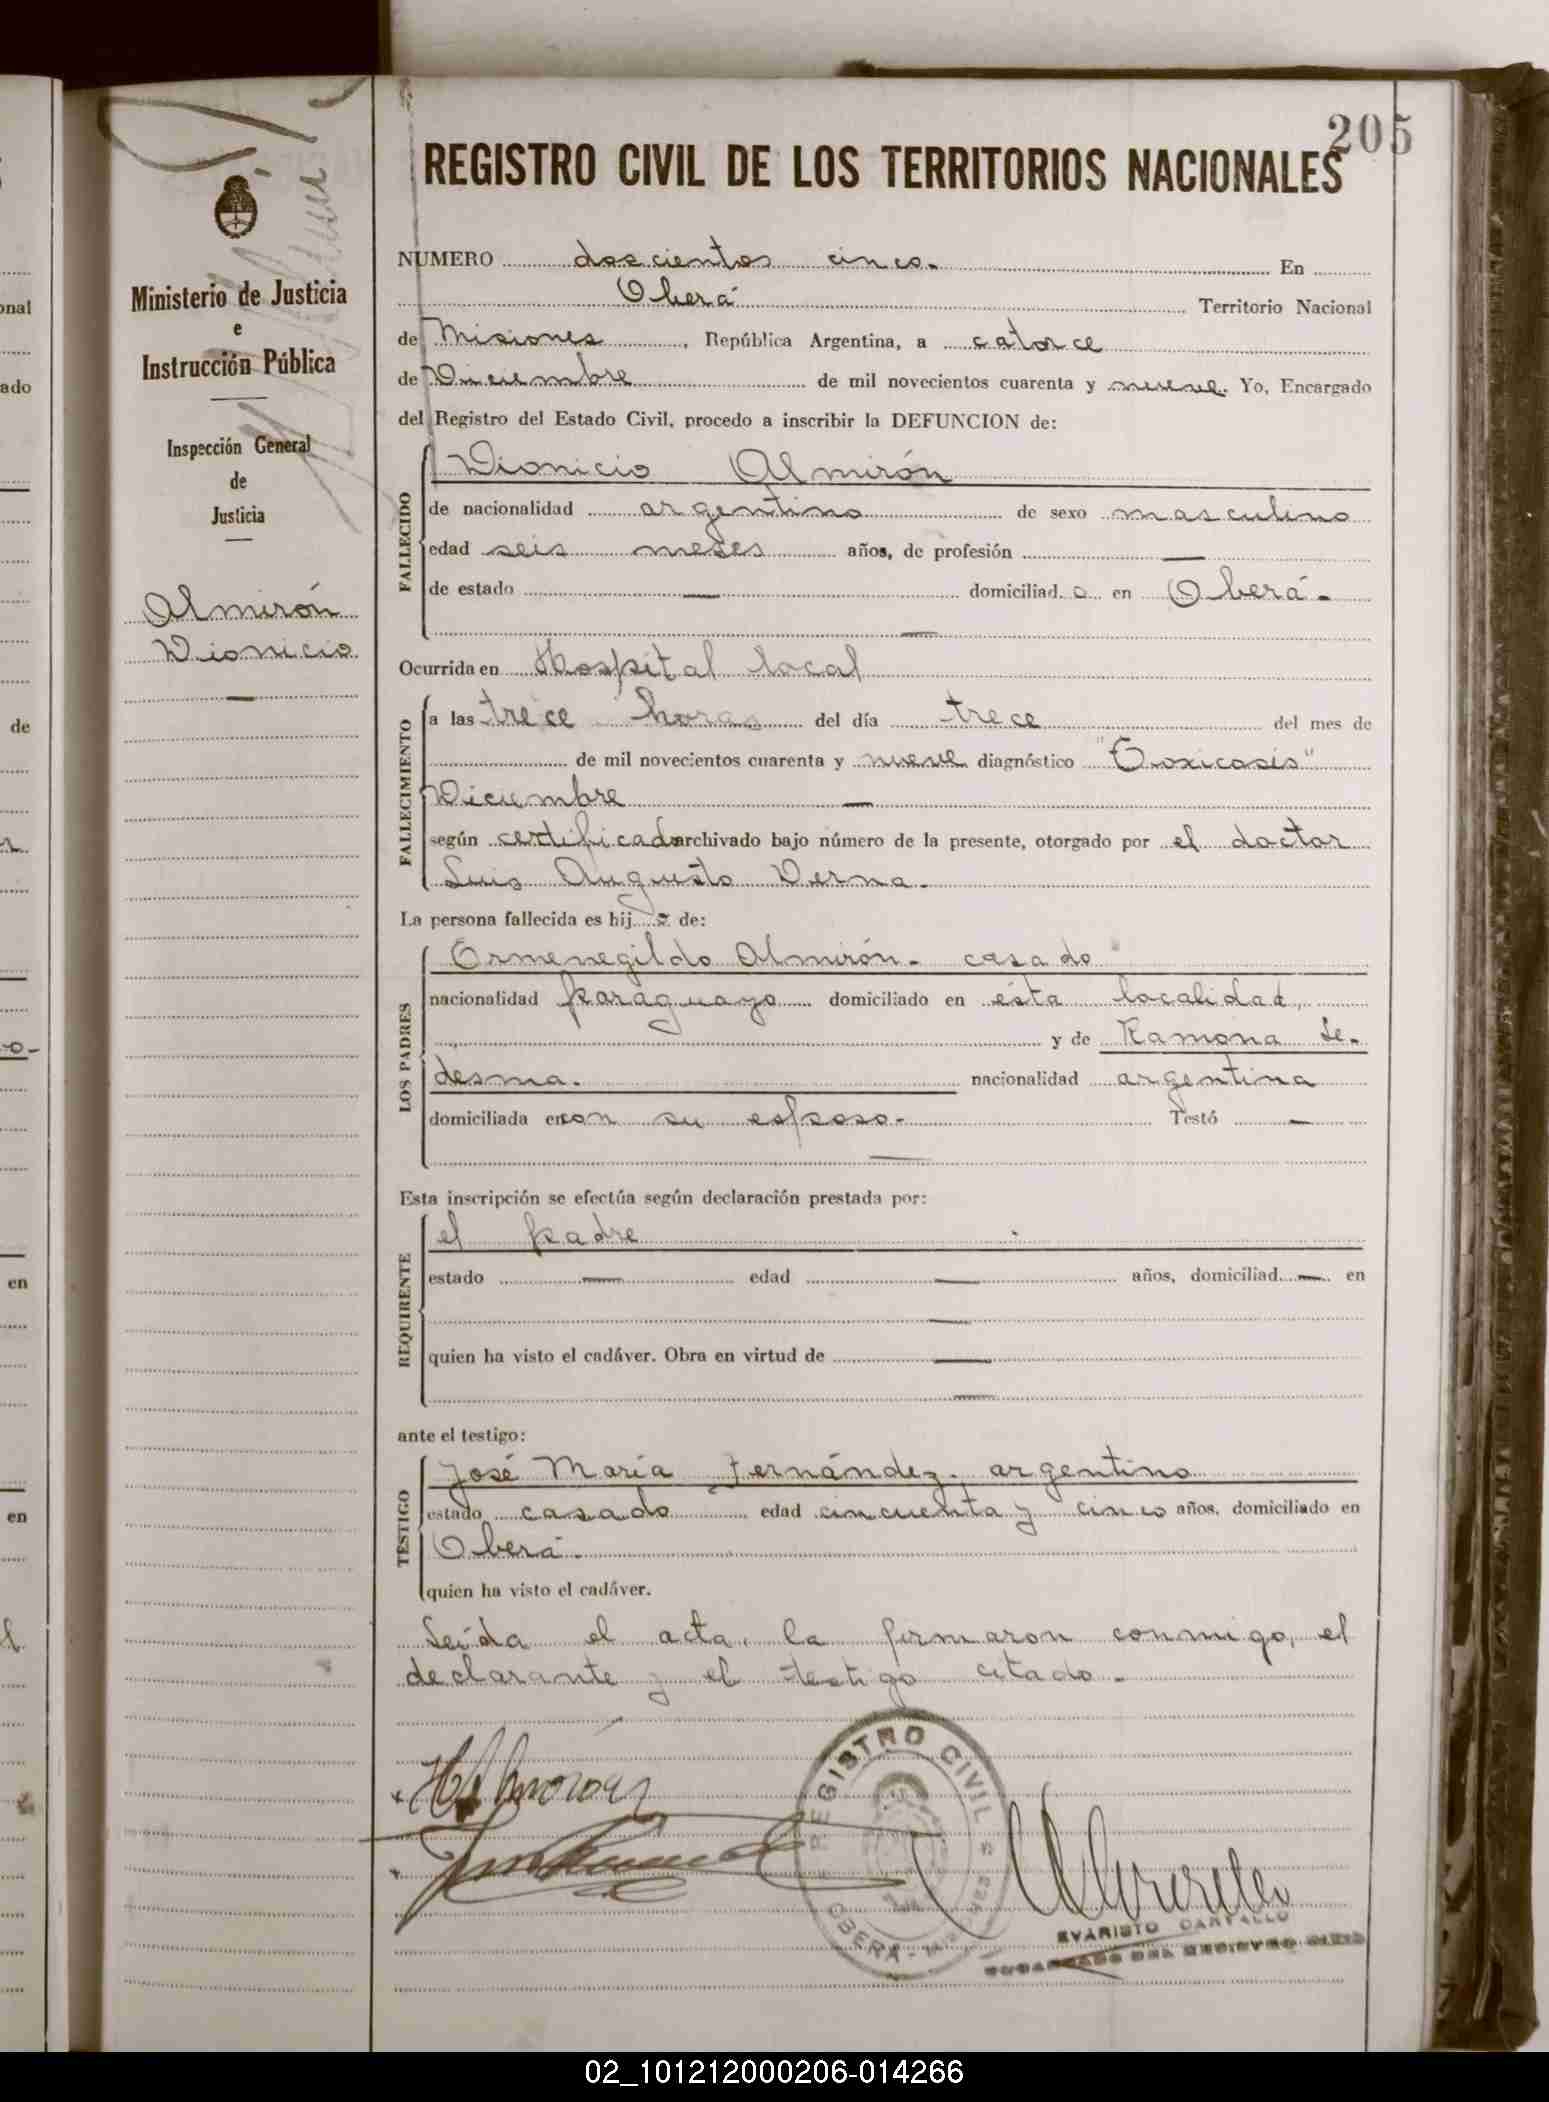 205
REGISTRO CIVIL DE LOS TERRITORIOS NACIONALES
Ministerio de Justicia
e
Instrucción Pública
Inspección General
de
Justicia
Almirón
Dionicio
NUMERO doscientos cinco. En
Oberá Territorio Nacional
de Misiones, República Argentina, a catorce
de Diciembre de mil novecientos cuarenta y nueve. Yo, Encargado
del Registro del Estado Civil, procedo a inscribir la DEFUNCION de:
FALLECIDO
Dionicio Almirón
de nacionalidad argentino de sexo masculino
edad seis meses años, de profesión —
de estado — domiciliad o en Oberá.
—
Ocurrida en Hospital local
FALLECIMIENTO
a las trece horas del día trece del mes de
de mil novecientos cuarenta y nueve diagnóstico "Toxicosis"
Diciembre —
según certificado archivado bajo número de la presente, otorgado por el doctor
Luis Augusto Derna.
La persona fallecida es hij o de:
LOS PADRES
Ermenegildo Almirón. casado
nacionalidad paraguayo domiciliado en ésta localidad,
y de Ramona Le-
desma. nacionalidad argentina
domiciliada en con su esposo. Testó —
—
Esta inscripción se efectúa según declaración prestada por:
REQUIRENTE
el padre
estado — edad — años, domiciliad — en
—
quien ha visto el cadáver. Obra en virtud de —
—
ante el testigo:
TESTIGO
José María Fernández. argentino
estado casado edad cincuenta y cinco años, domiciliado en
Oberá.
quien ha visto el cadáver.
Leída el acta, la firmaron conmigo, el
declarante y el testigo citado.
REGISTRO CIVIL
OBERÁ - MISIONES
EVARISTO CARFALLO
ENCARGADO DEL REGISTRO CIVIL
02_101212000206-014266